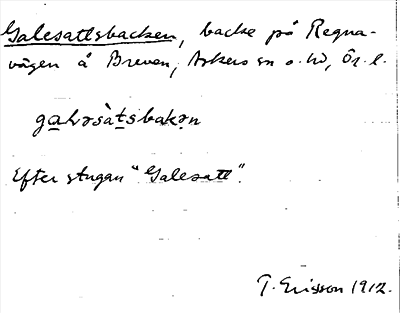 Galesattsbacken, backe på Regna-
vägen å Breven, Askers sn o. hd, Ör. l.
galəsàtsbakən
Efter stugan "Galesatt".
T. Ericsson 1912.